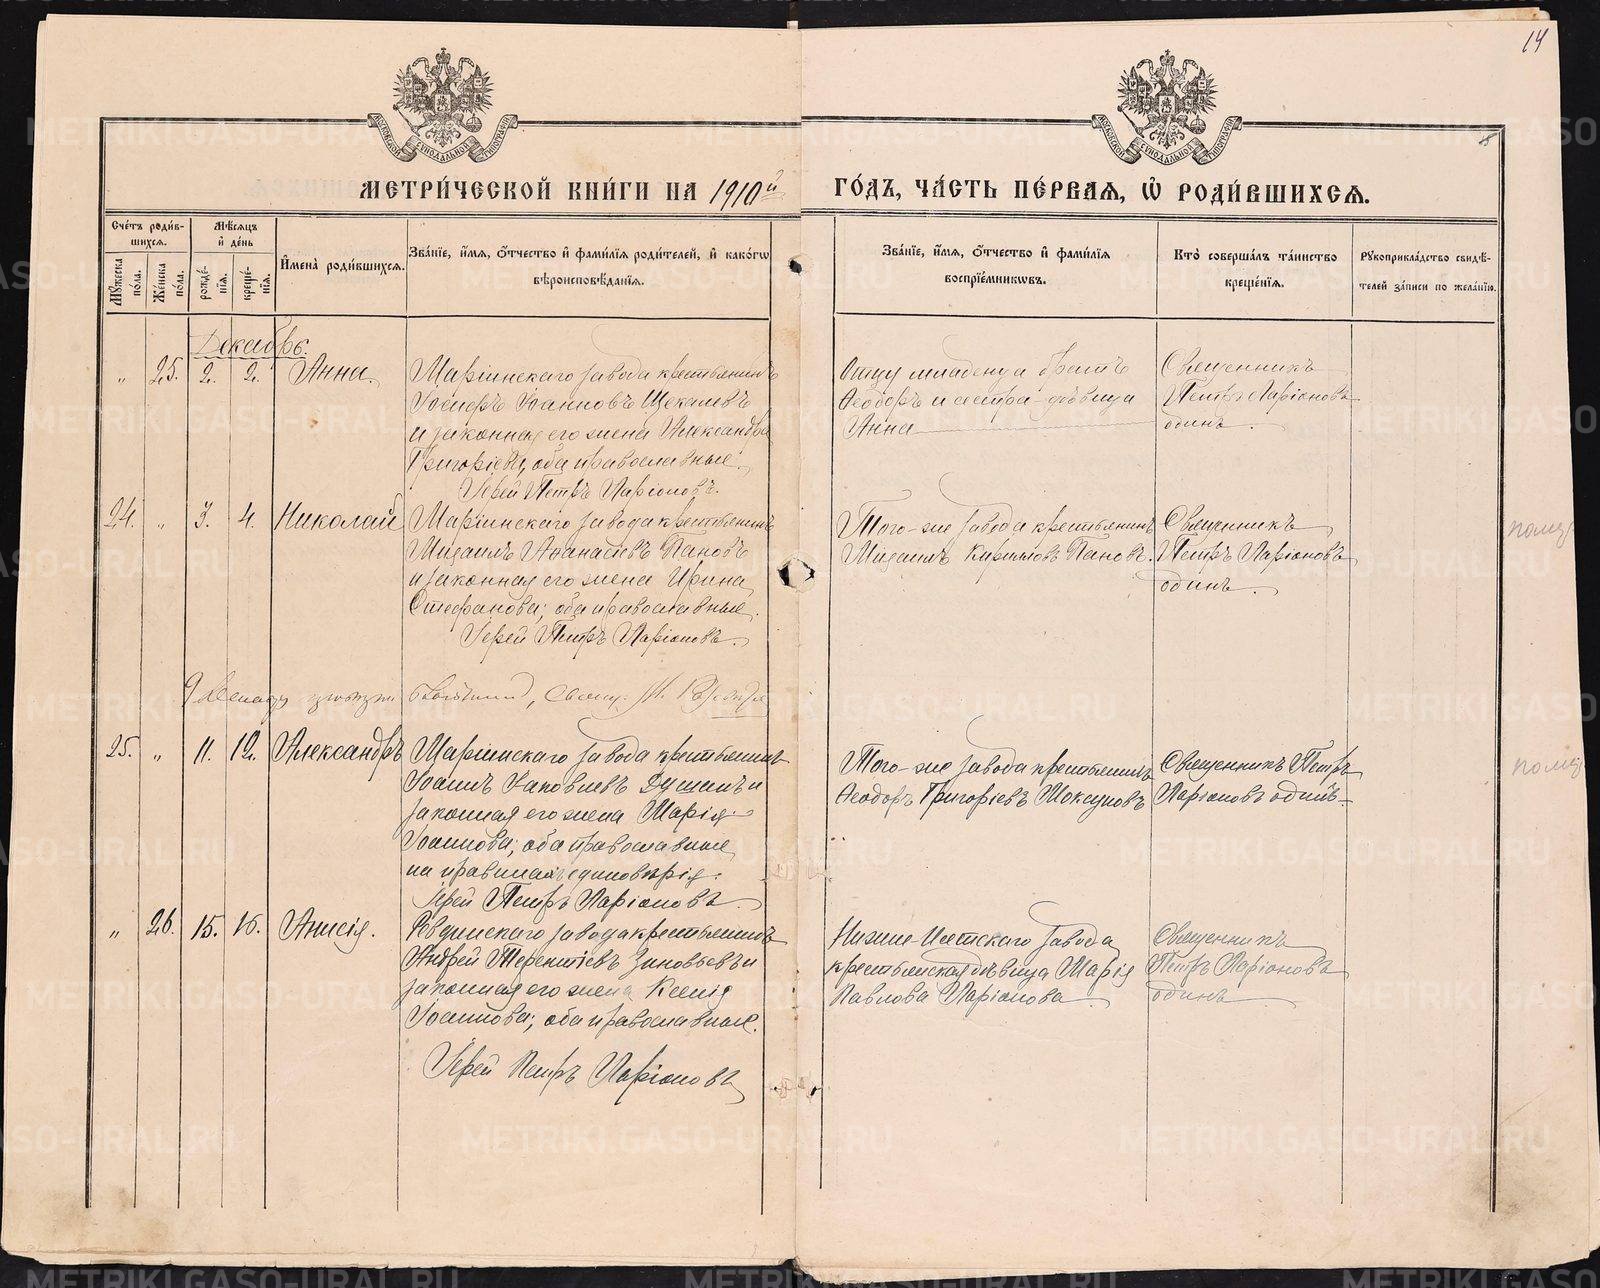 14
МОСКОВСКОЙ СѴНОДАЛЬНОЙ ТИПОГРАФІИ
МОСКОВСКОЙ СѴНОДАЛЬНОЙ ТИПОГРАФІИ
МЕТРИ́ЧЕСКОЙ КНИ́ГИ НА 1910й ГО́ДЪ, ЧА́СТЬ ПЕ́РВАѦ, Ѡ҆ РОДИ́ВШИХСѦ.
Сче́тъ роди́в-
шихсѧ.
Мꙋ́жеска по́ла.
Же́нска по́ла.
Мѣ́сѧцъ
и҆ де́нь
рожде́-
нїѧ.
креще́-
нїѧ.
И҆мена̀ роди́вшихсѧ.
Зва́нїе, и҆́мѧ, ѻ҆́тчество и҆ фами́лїѧ роди́телей, и҆ како́гѡ
вѣроисповѣ́данїѧ.
Зва́нїе, и҆́мѧ, ѻ҆́тчество и҆ фами́лїѧ
воспрїе́мникѡвъ.
Кто̀ соверша́лъ та́инство
креще́нїѧ.
Рꙋкоприкла́дство свидѣ́-
телей за́писи по жела́нїю.
Декабрь.
„ 25. 2. 2. Анна.
Маріинскаго завода крестьянинъ
Іосифъ Іоанновъ Щекалевъ
и законная его жена Александра
Григоріева, оба православные.
Іерей Петръ Ларіоновъ.
Отцу младенца братъ
Ѳеодоръ и сестра-дѣвица
Анна
Священникъ
Петръ Ларіоновъ
одинъ.
24. „ 3. 4. Николай
Маріинскаго завода крестьянинъ
Михаилъ Аѳанасіевъ Пановъ
и законная его жена Ирина
Стефанова; оба православные.
Іерей Петръ Ларіоновъ.
Того-же завода крестьянинъ
Михаилъ Кириловъ Пановъ.
Священникъ
Петръ Ларіоновъ
одинъ.
25. „ 11. 12. Александръ
Маріинскаго завода крестьянинъ
Іоаннъ Іаковлевъ Душинъ и
законная его жена Марія
Іоаннова; оба православные
на правилахъ единовѣрія.
Іерей Петръ Ларіоновъ.
Того-же завода крестьянинъ
Ѳеодоръ Григоріевъ Моксуновъ
Священникъ Петръ
Ларіоновъ одинъ
„ 26. 15. 16. Анисія.
Ревдинскаго завода крестьянинъ
Андрей Терентіевъ Зиновьевъ и
законная его жена Ксенія
Іоаннова; оба православные.
Іерей Петръ Ларіоновъ
Нижне-Исетскаго завода
крестьянская дѣвица Марія
Павлова Ларіонова
Священникъ
Петръ Ларіоновъ
одинъ
METRIKI.GASO-URAL.RU